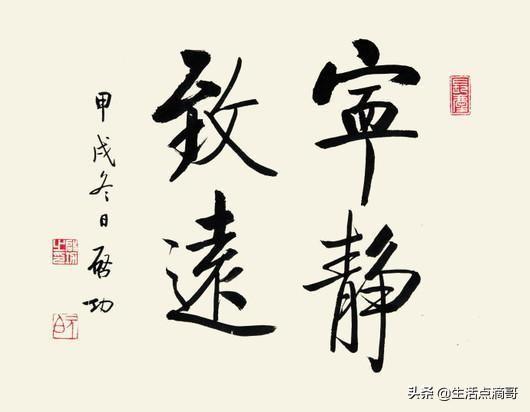 寧静
致遠
甲戌冬日启功
头条 @生活点滴哥